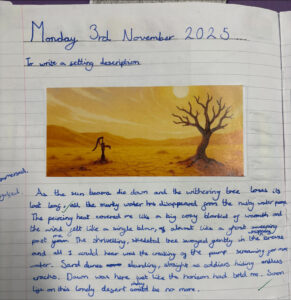 Monday 3rd November 2025
To write a setting description
As the sun beams die down and the withering tree loses its
last leaf, all the murky water has disappeared from the rusty water pump.
The piercing heat covered me like a big cosy blanket of warmth and
the wind felt like a single blow, of almost like a ghost
past me. The shrivelling, skeletal tree swayed gently in the breeze
and all I could hear was the creaking of the pump screaming for more
water. Sand dunes standing, straight as soldiers hiding endless
. Dawn was here just like the horizon had told me. Soon
life on this lonely desert would be no more.